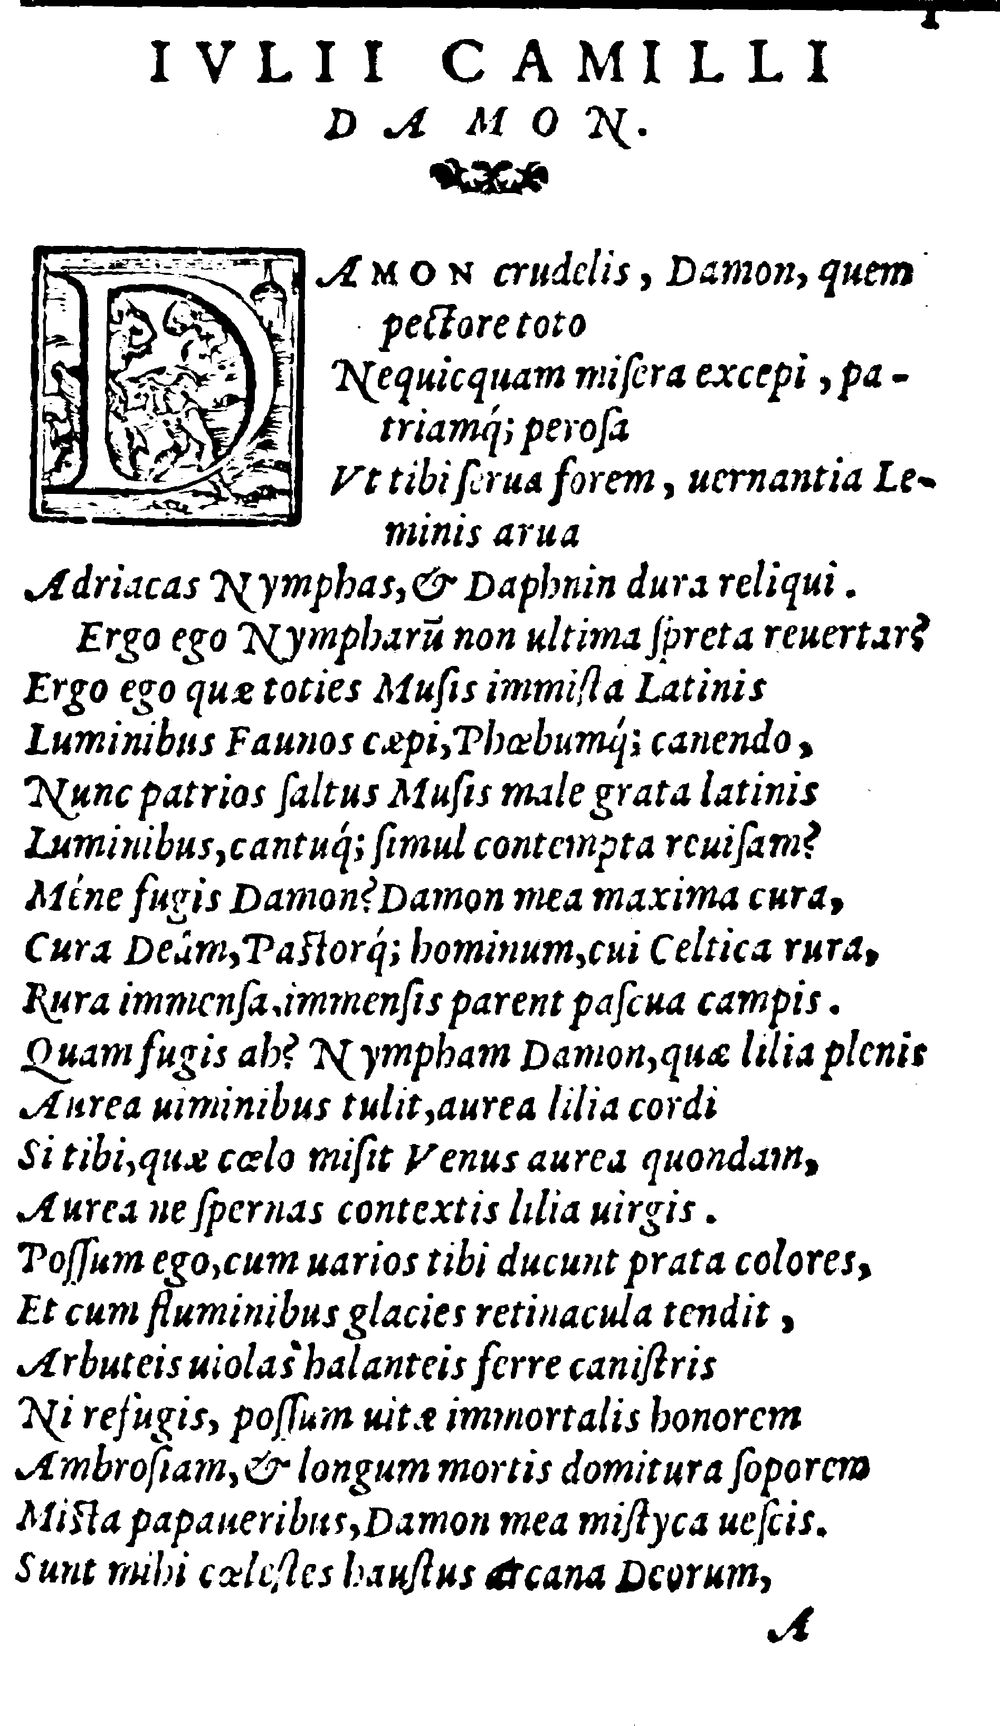 1
IVLII CAMILLI
DAMON.
DAMON crudelis, Damon, quem
pectore toto
Nequicquam miſera excepi, pa-
triamq́; peroſa
Vt tibi ſerua forem, uernantia Le-
minis arua
Adriacas Nymphas, & Daphnin dura reliqui.
Ergo ego Nympharū non ultima ſpreta reuertar?
Ergo ego quæ toties Muſis immiſta Latinis
Luminibus Faunos cæpi, Phœbumq́; canendo,
Nunc patrios ſaltus Muſis male grata latinis
Luminibus, cantuq́; ſimul contempta reuiſam?
Méne fugis Damon? Damon mea maxima cura,
Cura Deûm, Paſtorq́; hominum, cui Celtica rura,
Rura immenſa, immenſis parent paſcua campis.
Quam fugis ah? Nympham Damon, quæ lilia plenis
Aurea uiminibus tulit, aurea lilia cordi
Si tibi, quæ cœlo miſit Venus aurea quondam,
Aurea ne ſpernas contextis lilia uirgis.
Poſſum ego, cum uarios tibi ducunt prata colores,
Et cum fluminibus glacies retinacula tendit,
Arbuteis uiolas halanteis ferre caniſtris
Ni refugis, poſſum uitæ immortalis honorem
Ambroſiam, & longum mortis domitura ſoporem
Miſta papaueribus, Damon mea miſtyca ueſcis.
Sunt mihi cœleſtes hauſtus arcana Deorum,
A